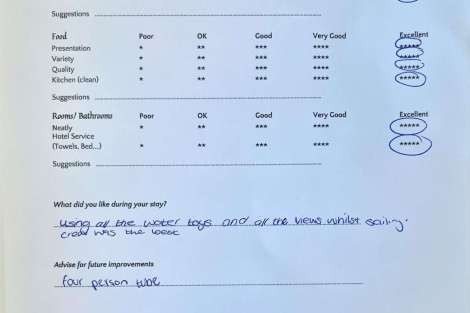 Suggestions
Food Poor OK Good Very Good Excellent
Presentation * ** *** **** *****
Variety * ** *** **** *****
Quality * ** *** **** *****
Kitchen (clean) * ** *** **** *****
Suggestions
Rooms/ Bathrooms Poor OK Good Very Good Excellent
Neatly * ** *** **** *****
Hotel Service
(Towels, Bed...) * ** *** **** *****
Suggestions
What did you like during your stay?
using all the water toys and all the views whilst sailing.
crew was the best
Advise for future improvements
four person tube